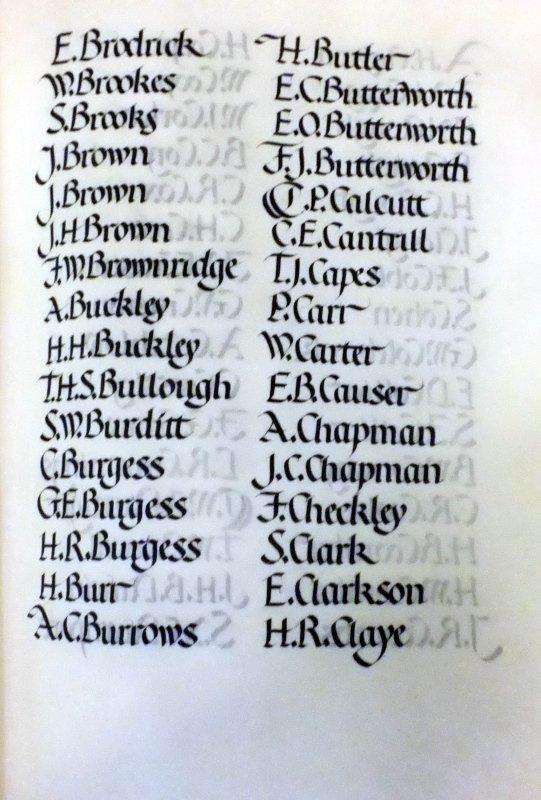 E. Brodrick
W. Brookes
S. Brooks
J. Brown
J. Brown
J. H Brown
F. W. Brownridge
A. Buckley
H. H. Buckley
T. H. S. Bullough
S. W. Burditt
C. Burgess
G. E. Burgess
H. R. Burgess
H. Burr
A. C. Burrows
H. Butter
E. C. Butterworth
E. O. Butterworth
F. J. Butterworth
C. P. Calcutt
C. E. Cantrill
T. J. Capes
P. Carr
W. Carter
E. B. Causer
A. Chapman
J. C. Chapman
F. Checkley
S. Clark
E. Clarkson
H. R. Claye